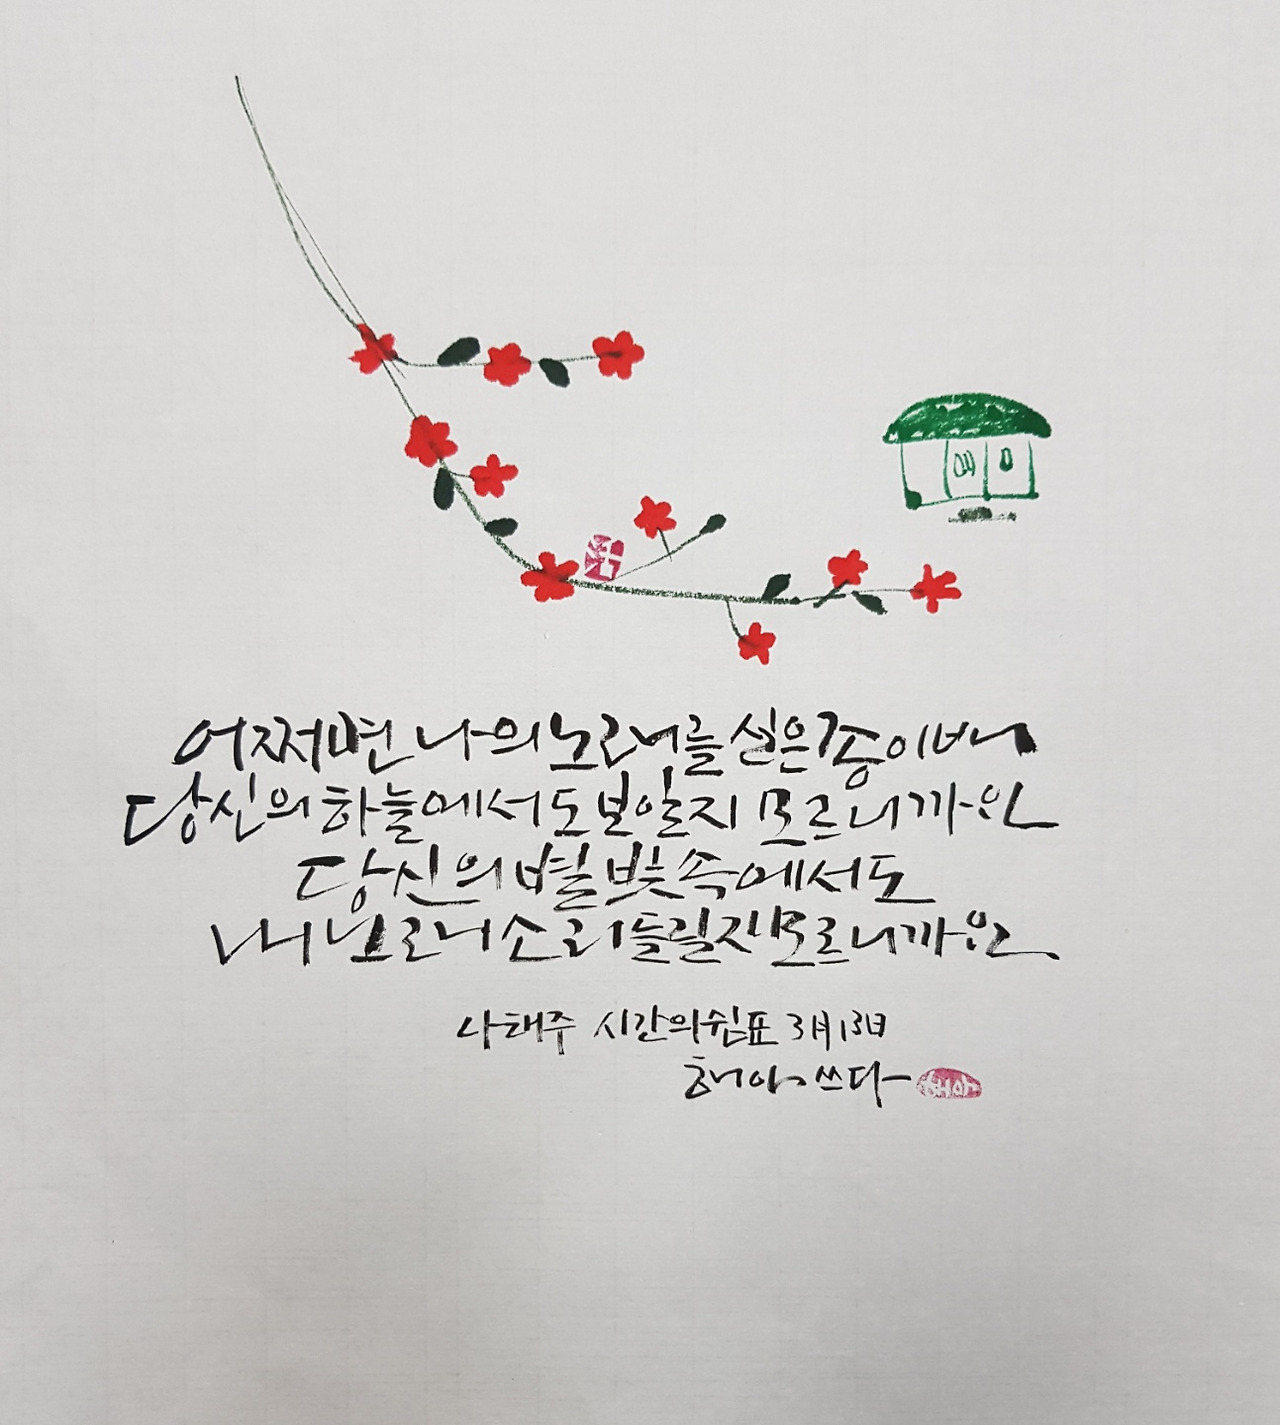 어쩌면 나의 노래를 실은 종이배
당신의 하늘에서도 보일지 모르니까요
당신의 별빛 속에서도
내 노래 소리 들릴지 모르니까요
나태주 시간의 쉼표 3月13日
해아 쓰다 해아